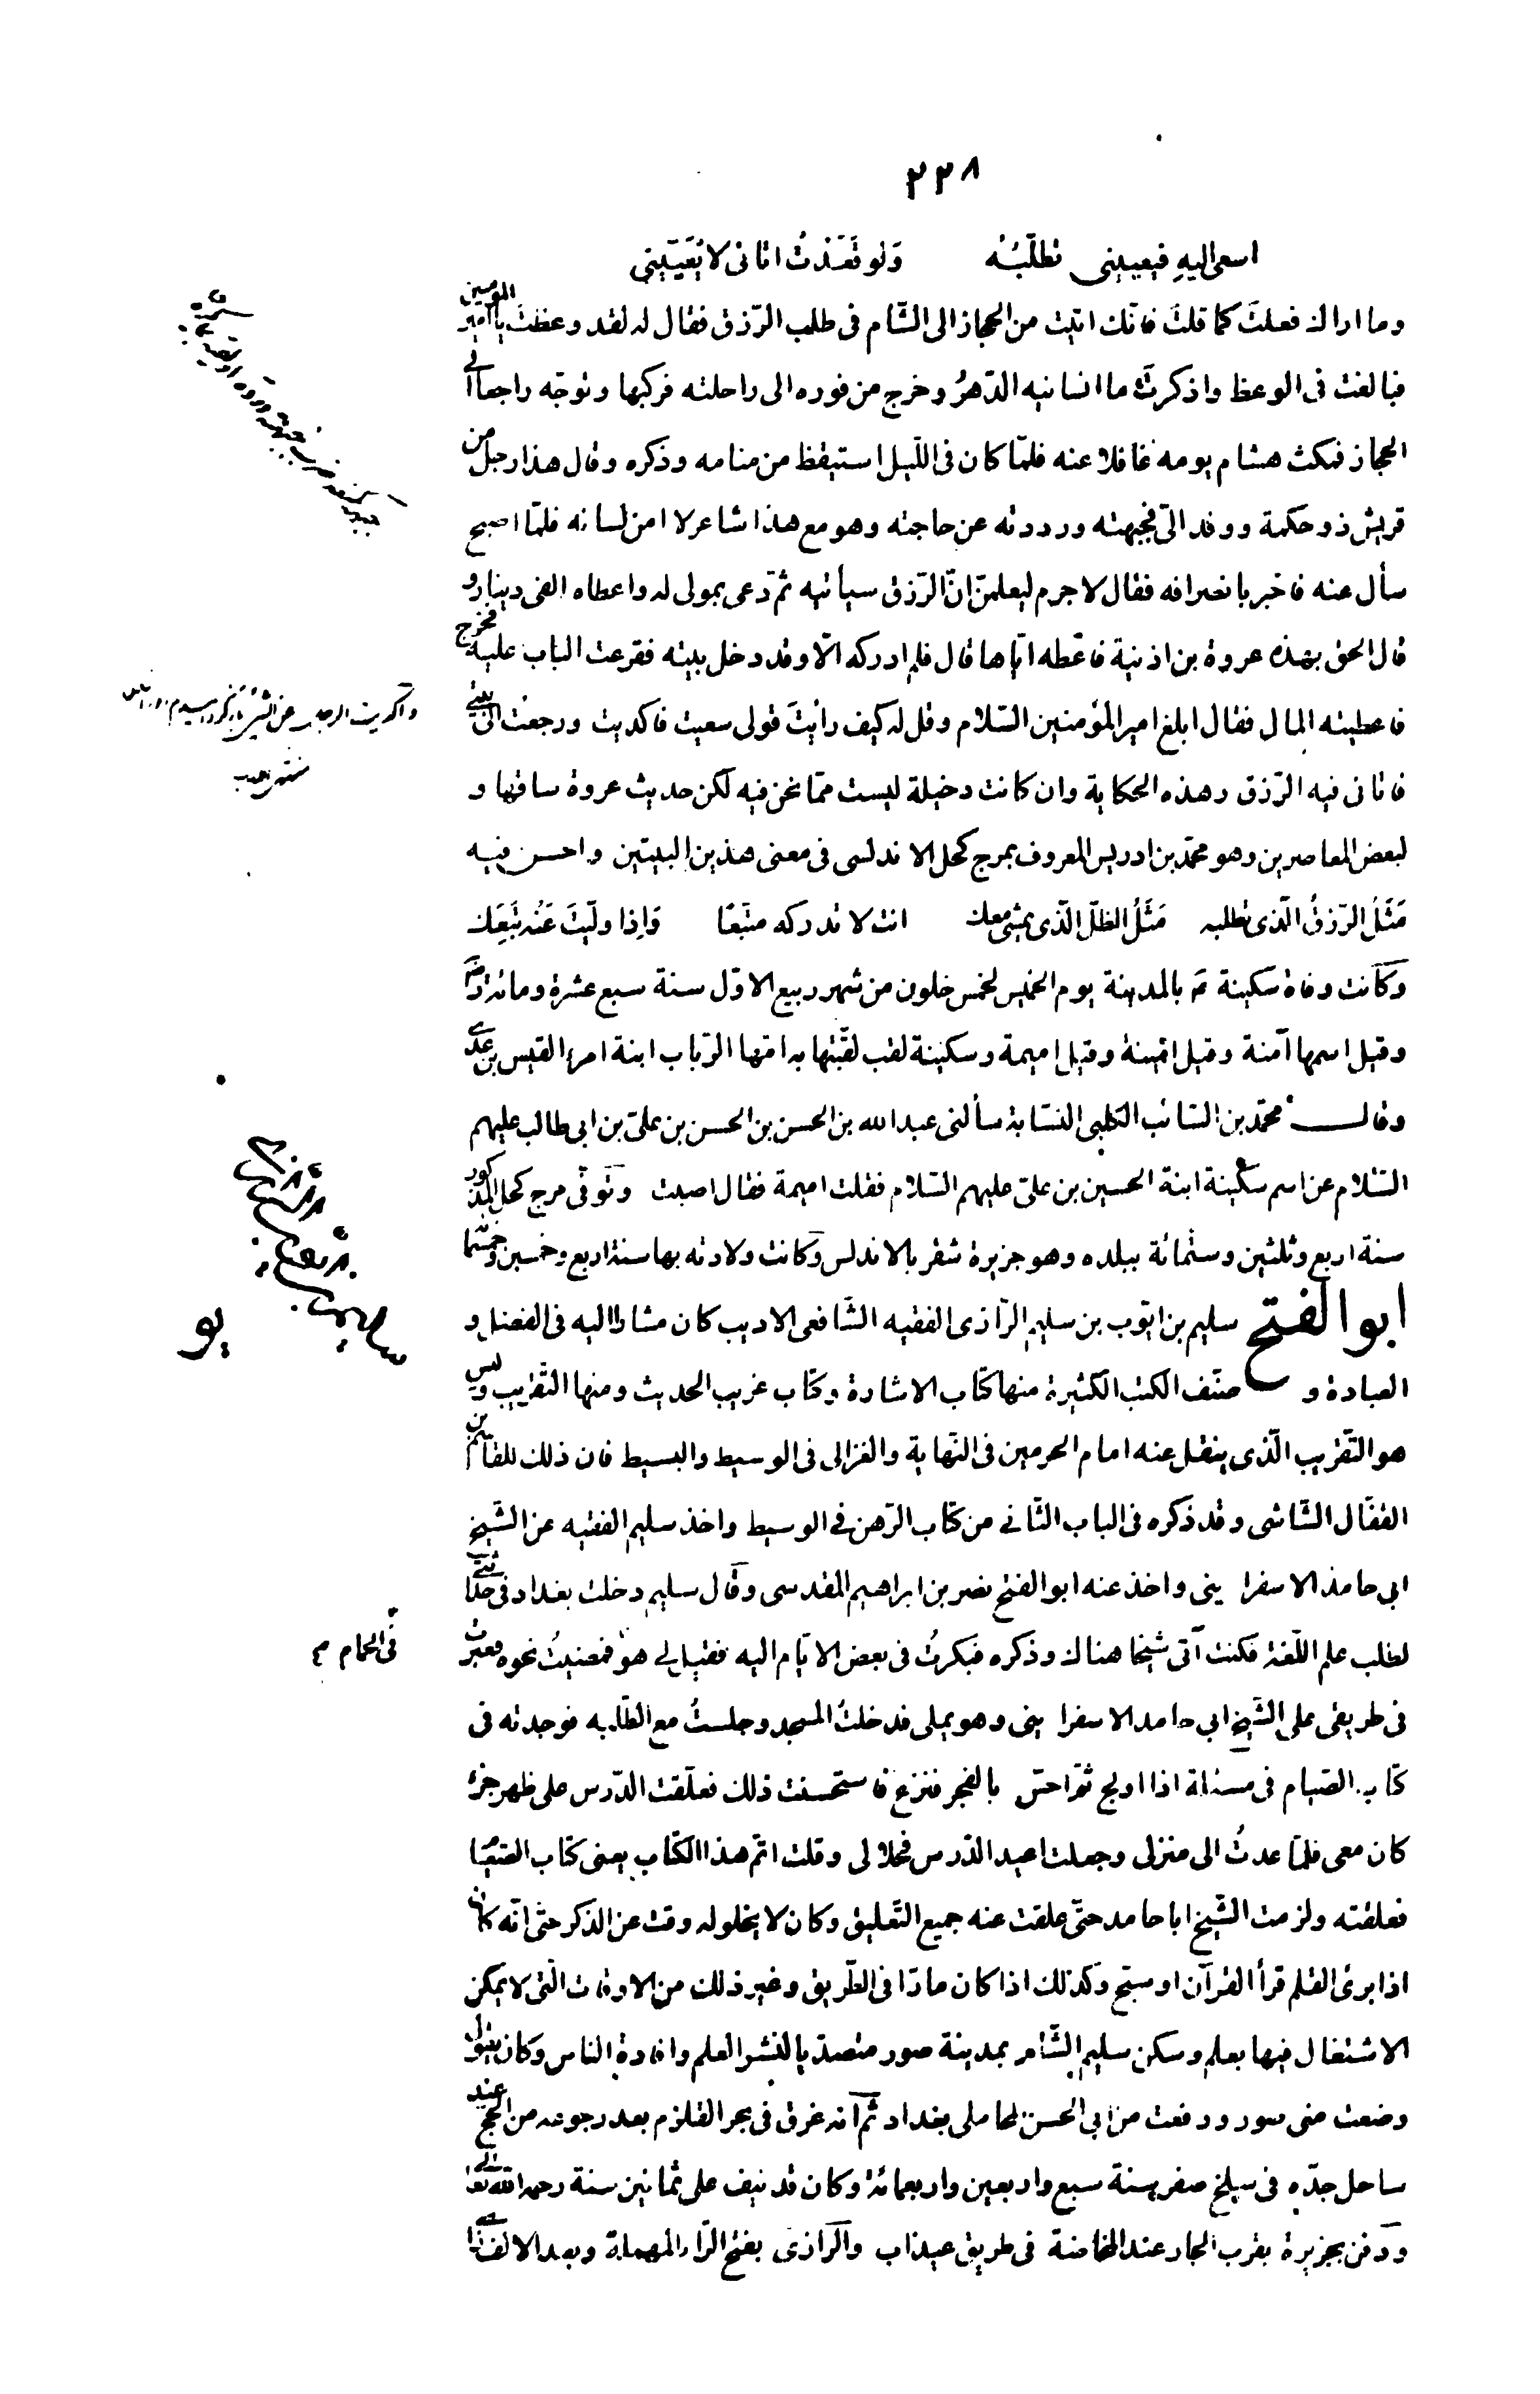 ٢٣٨
اسعى اليهِ فيعييني تطلّبُه ولو قعدتُ اتانى لا يُعَيّيني
وما اراك فعلتَ كما قلتَ فانّك اتيت من الحجاز الى الشّام فى طلب الرّزق فقال له لقد وعظتَ يا امير المؤمنين
فبالغت فى الوعظ واذكرتَ ما انسانيه الدّهرُ وخرج من فوره الى راحلته فركبها وتوجّه راجعا الى
الحجاز فمكث هشام يومه غافلا عنه فلمّا كان فى اللّيل استيقظ من منامه وذكره وقال هذا رجل من
قريش ذو حكمة ووفد الىّ فجبهته ورددته عن حاجته وهو مع هذا شاعر لا امن لسانه فلمّا اصبح
سأل عنه فاخبر بانصرافه فقال لا جرم ليعلمنّ انّ الرّزق سيأتيه ثمّ دعى بمولى له واعطاه الفى دينار و
قال الحق بهذه عروة بن اذينة فاعطه ايّاها قال فلم ادركه الّا وقد دخل بيته فقرعت الباب عليه فخرج
فاعطيته المال فقال ابلغ امير المؤمنين السّلام وقل له كيف رأيتَ قولى سعيت فاكديت ورجعت الى بيتى
فاتانى فيه الرّزق وهذه الحكاية وان كانت دخيلة ليست ممّا نحن فيه لكن حديث عروة ساقها و
لبعض المعاصرين وهو محمّد بن ادريس المعروف بمرج كحل الاندلسى فى معنى هذين البيتين واحسن فيه
مَثَلُ الرّزقُ الّذى تطلبه مَثَلُ الظلّ الّذى يمشى معك انت لا تدركه متّبعًا وَاِذا ولّيتَ عَنُه تبِعَك
وكانت وفاة سكينة بالمدينة يوم الخميس لخمس خلون من شهر ربيع الاوّل سنة سبع عشرة ومائة
وقيل اسمها آمنة وقيل امينة وقيل اميمة وسكينة لقب لقّبتها به امّها الرّباب ابنة امرء القيس بن عدى
وقال محمّد بن السّائب الكلبى النسّابة سألنى عبد الله بن الحسن بن الحسن بن علىّ بن ابى طالب عليهم
السّلام عن اسم سكينة ابنة الحسين بن علىّ عليهم السّلام فقلت اميمة فقال اصبت وتوفّى مرج كحل المذكور
سنة اربع وثلثين وستّمائة ببلده وهو جزيرة شقر بالاندلس وكانت ولادته بها سنة اربع وخمسين وخمسمائة
ابو الفتح سليم بن ايّوب بن سليم الرّازى الفقيه الشّافعى الاديب كان مشارا اليه فى الفضل و
العبادة و صنّف الكتب الكثيرة منها كتاب الاشارة وكتاب غريب الحديث ومنها التّقريب وليس
هو التّقريب الّذى ينقل عنه امام الحرمين فى النّهاية والغزالى فى الوسيط والبسيط فان ذلك للقاسم بن
القفّال الشّاشى وقد ذكره فى الباب الثّانى من كتاب الرّهن فى الوسيط واخذ سليم الفقيه عن الشّيخ
ابى حامد الاسفراينى واخذ عنه ابو الفتح نصر بن ابراهيم المقدسى وقال سليم دخلت بغداد فى حداثتى
لطلب علم اللّغة فكنت آتى شيخا هناك وذكره فبكرتُ فى بعض الايّام اليه فقيل لى هو فمضيتُ نحوه فعبرت
فى الحمام
فى طريقى على الشّيخ ابى حامد الاسفراينى وهو يملى فدخلتُ المسجد وجلستُ مع الطّلبه فوجدته فى
كتاب الصّيام فى مسئلة اذا اولج ثمّ احسّ بالفجر فنزع فاستحسنت ذلك فعلّقت الدّرس على ظهر جزء
كان معى فلمّا عدتُ الى منزلى وجعلت اعيد الدّرس فحلا لى وقلت اتمّ هذا الكتاب يعنى كتاب الصّيام
فعلقته ولزمت الشّيخ ابا حامد حتّى علقت عنه جميع التّعليق وكان لا يخلو له وقت عن الذكر حتّى انّه كان
اذا برئ القلم قرأ القرآن او سبّح وكذلك اذا كان مارّا فى الطّريق وغير ذلك من الاوقات الّتى لا يمكن
الاشتغال فيها بعلم وسكن سليم الشّام بمدينة صور متصدّيا لنشر العلم وافادة الناس وكان يقول
وضعت منى صور ورفعت من ابى الحسن المحاملى بغداد ثمّ انه غرق فى بحر القلزم بعد رجوعه من الحجّ عند
ساحل جدّه فى سلخ صفر سنة سبع واربعين واربعمائة وكان قد نيف على ثمانين سنة رحمه الله تعالى
ودفن بجزيرة بقرب الجار عند المخاضة فى طريق عيذاب والرازى بفتح الرّاء المهملة وبعد الالف